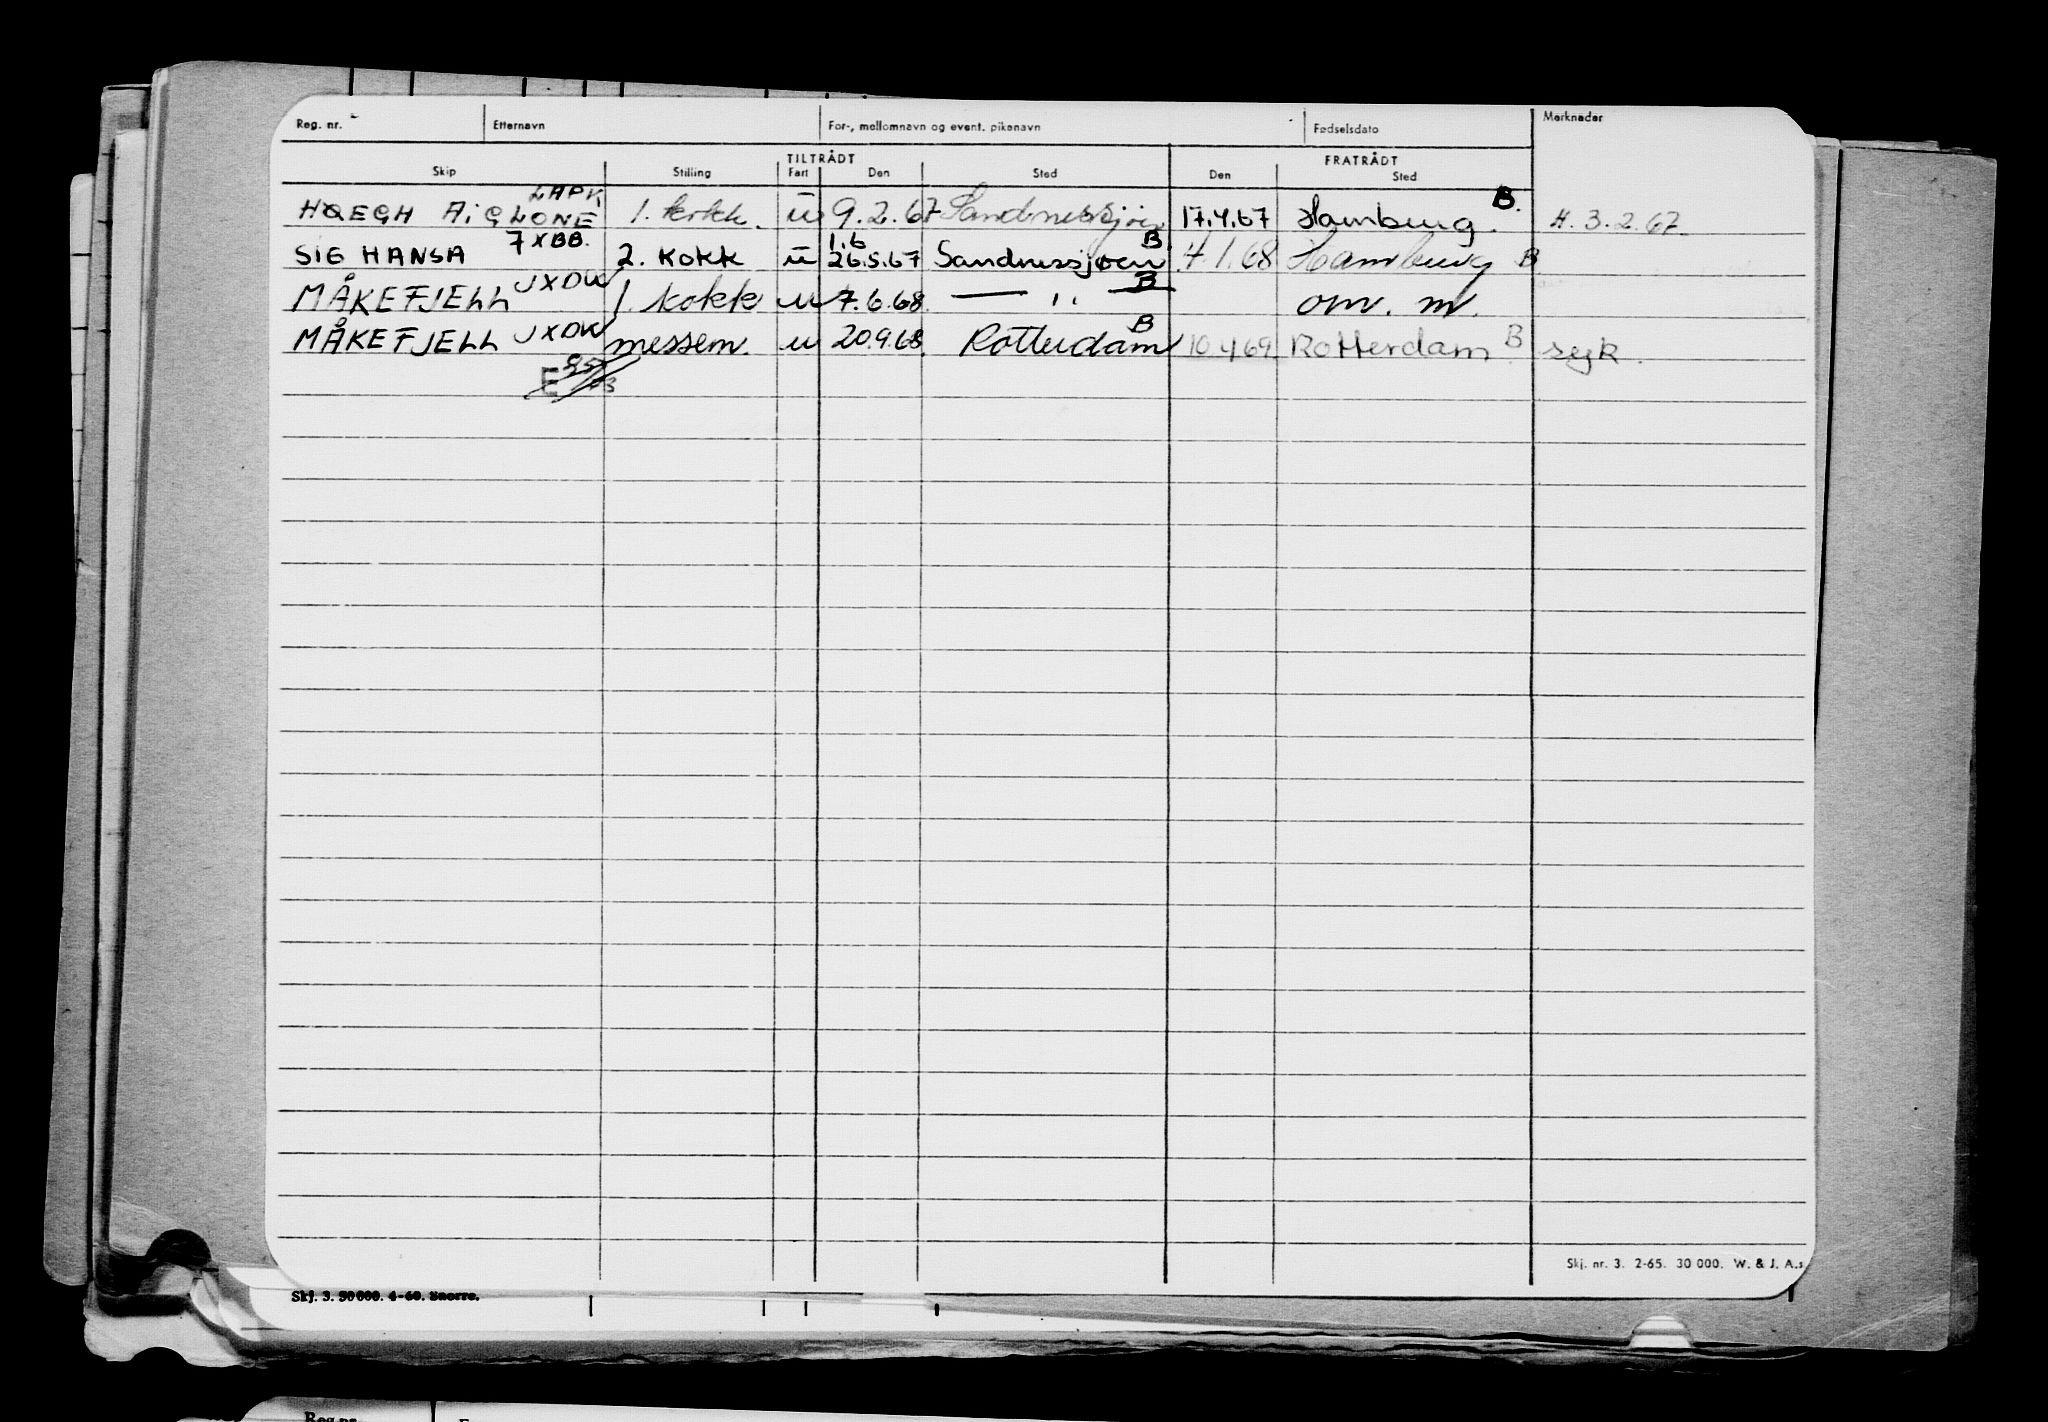 Reg. nr. Etternavn For-, mellomnavn og event. pikenavn Fødselsdato Merknader
TILTRÅDT FRATRÅDT
Skip Stilling Fart Den Sted Den Sted
LAPK B.
HØEGH AIGLONE 1. kokk. u 9.2.67 Sandnessjøen 17.4.67 Hamburg. H. 3.2.67.
7XBB. 1.6 B.
SIG HANSA 2. KOKK u 26.5.67 Sandnessjøen 4.1.68 Hamburg B
JXDW B
MÅKEFJELL 1. kokk u 7.6.68. — ,, — om. m.
JXDW B B
MÅKEFJELL messem. u 20.9.68. Rotterdam 10.4.69 Rotterdam. syk.
E
Skj. nr. 3. 2-65. 30 000. W. & J. A.s
Skj. 3. 50 000. 4-60. Snorre.
Reg.nr.